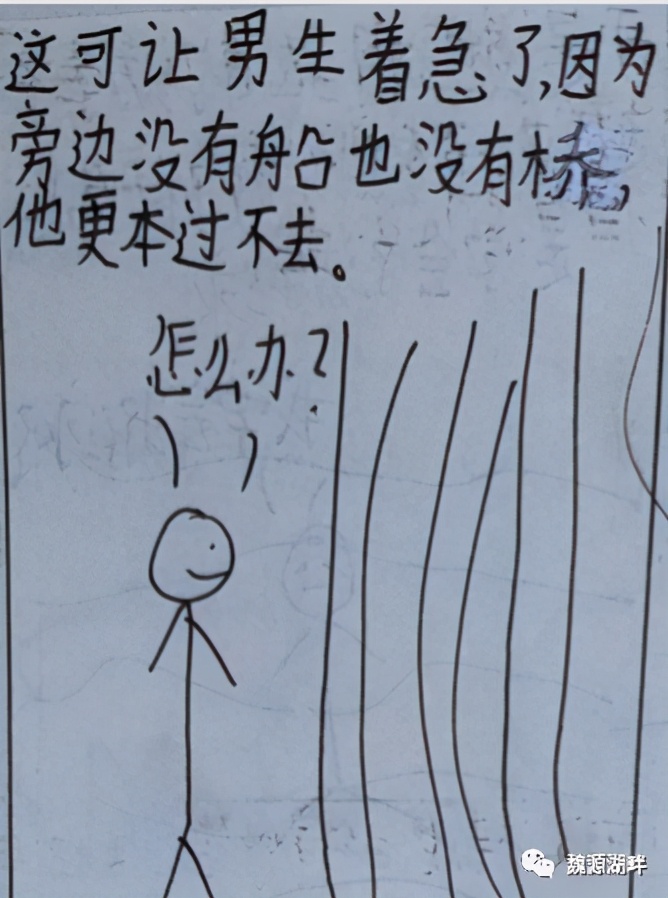 这可让男生着急了,因为
旁边没有船也没有桥,
他更本过不去。
怎么办?
魏源湖畔